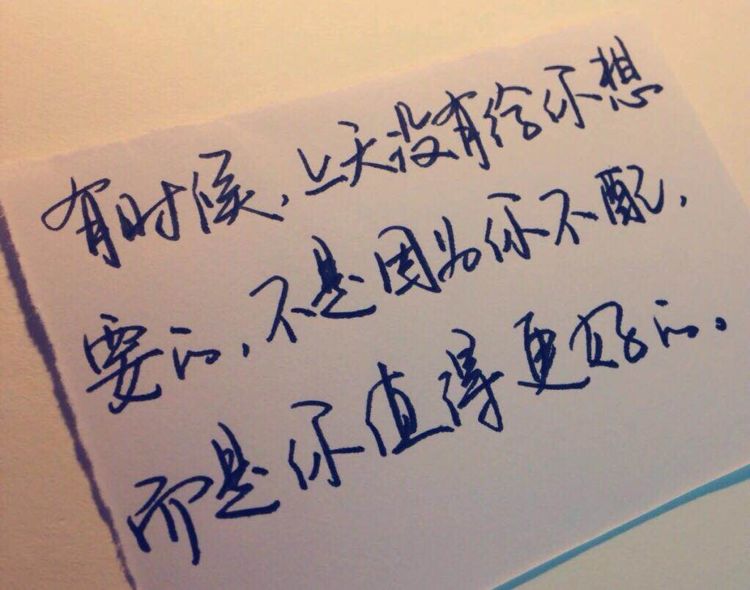 有时候,上天没有给你想
要的,不是因为你不配,
而是你值得更好的。